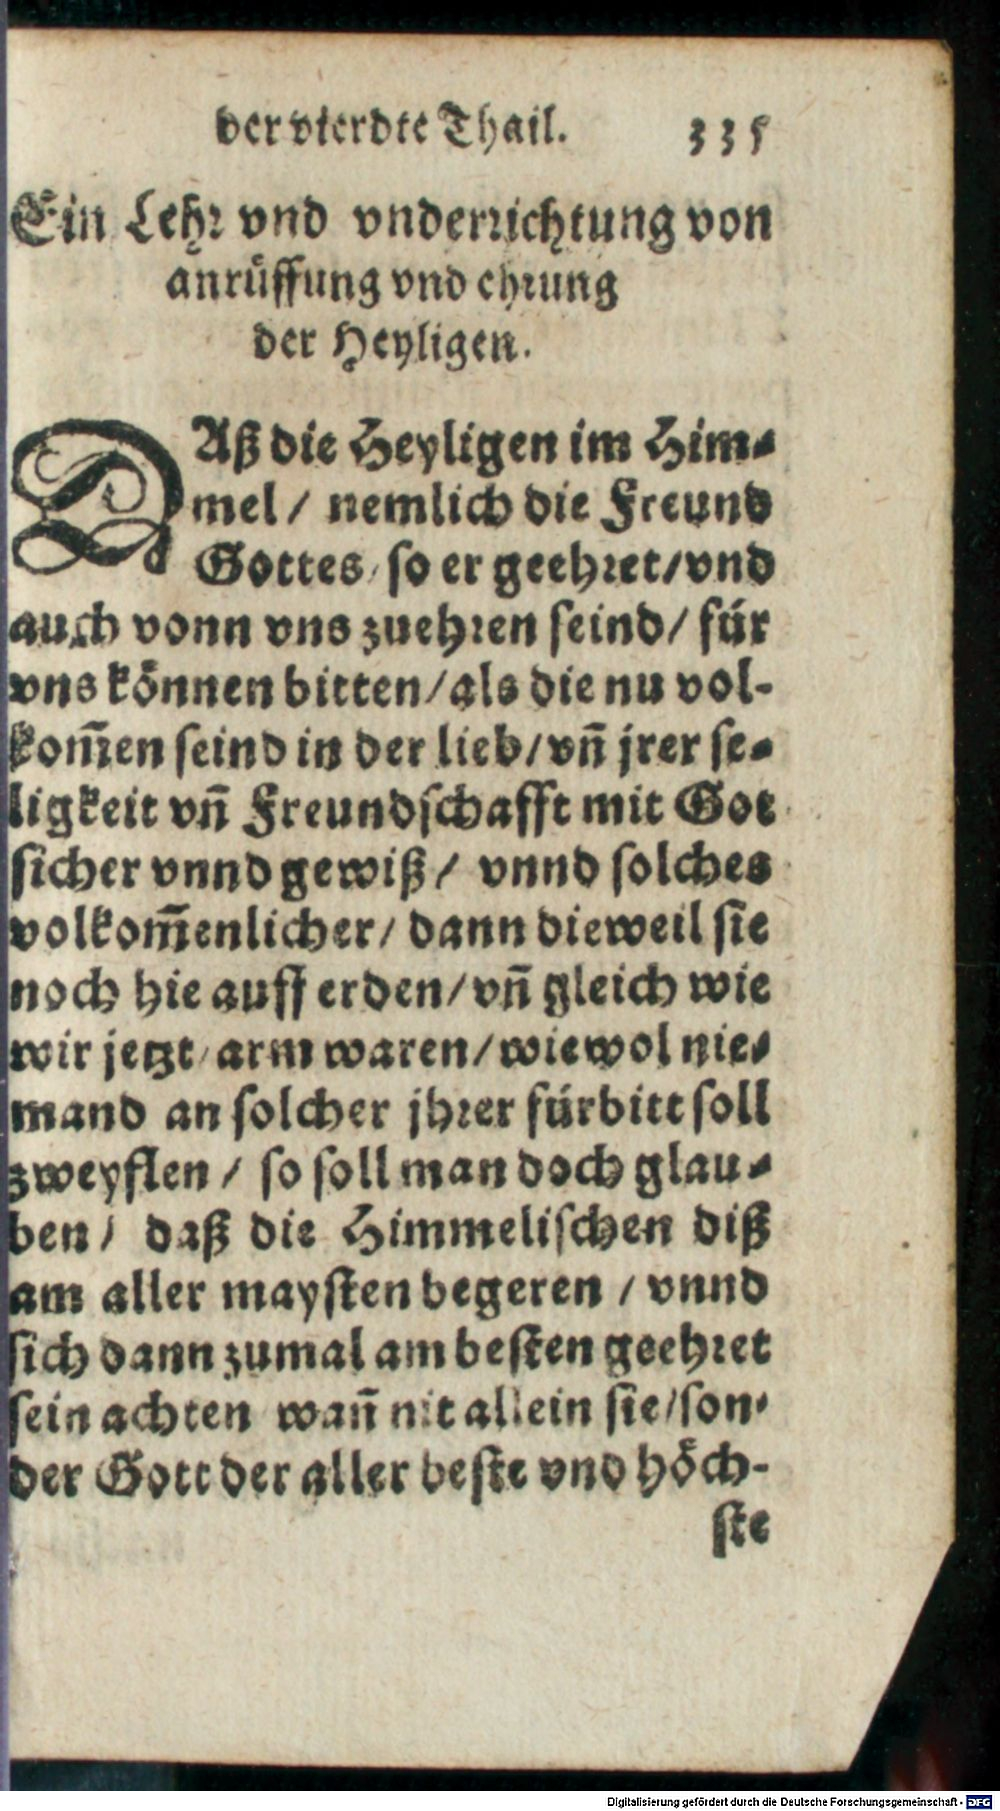 der vierdte Thail. 335
Ein Lehr vnd vnderrichtung von
anrüffung vnd ehrung
der Heyligen.
DAß die Heyligen im Him⸗
mel / nemlich die Freund
Gottes / so er geehret / vnd
auch vonn vns zuehren seind / für
vns können bitten / als die nu vol-
kom̃en seind in der lieb / vñ jrer se⸗
ligkeit vñ Freundschafft mit Got
sicher vnnd gewiß / vnnd solches
volkom̃enlicher / dann dieweil sie
noch hie auff erden / vñ gleich wie
wir jetzt / arm waren / wiewol nie⸗
mand an solcher jhrer fürbitt soll
zweyflen / so soll man doch glau⸗
ben / daß die Himmelischen diß
am aller maysten begeren / vnnd
sich dann zumal am besten geehret
sein achten wañ nit allein sie / son⸗
der Gott der aller beste vnd höch-
ste
Digitalisierung gefördert durch die Deutsche Forschungsgemeinschaft - DFG